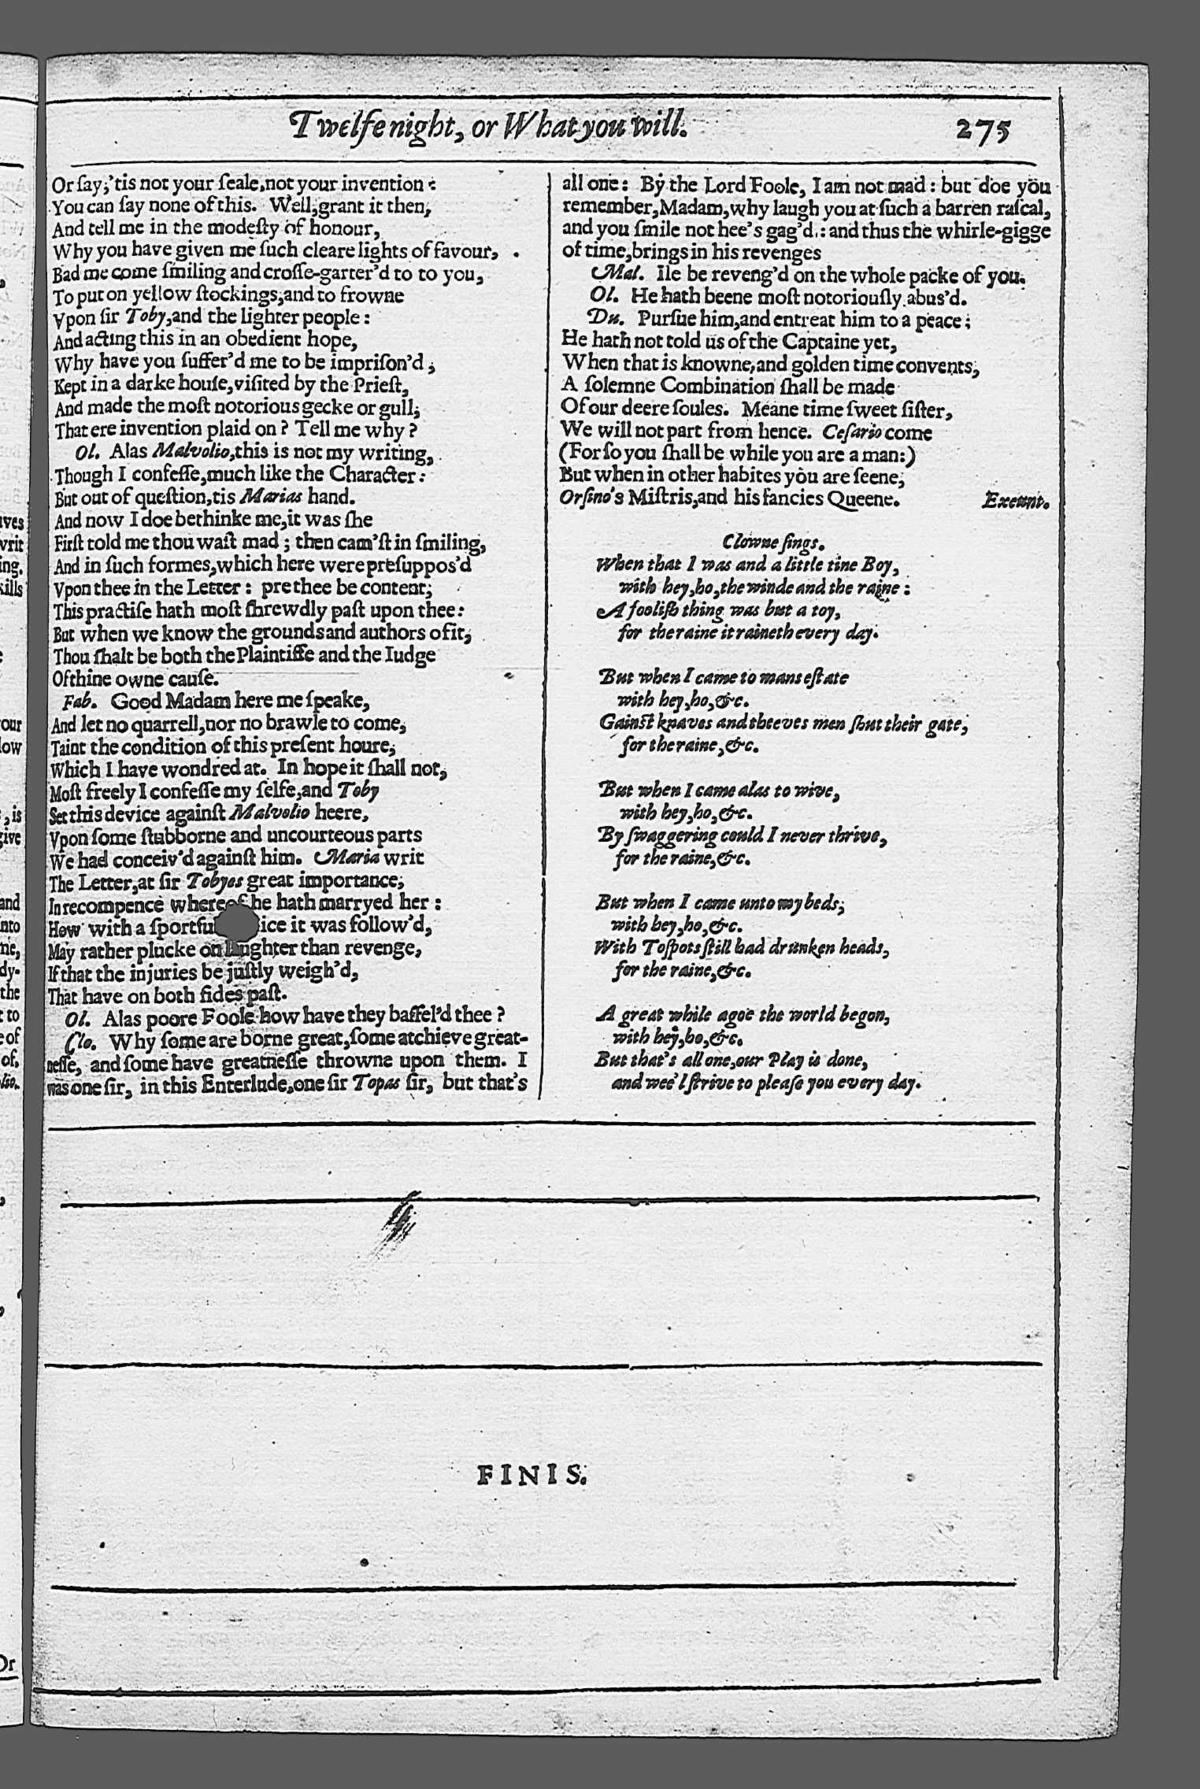 Twelfe night, or What you will.
275
Or ſay,'tis not your ſeale,not your invention:
You can ſay none of this. Well,grant it then,
And tell me in the modeſty of honour,
Why you have given me ſuch cleare lights of favour,
Bad me come ſmiling and croſſe-garter'd to to you,
To put on yellow ſtockings,and to frowne
Vpon ſir Toby,and the lighter people:
And acting this in an obedient hope,
Why have you ſuffer'd me to be impriſon'd;
Kept in a darke houſe,viſited by the Prieſt,
And made the moſt notorious gecke or gull;
That ere invention plaid on? Tell me why?
Ol. Alas Malvolio,this is not my writing,
Though I confeſſe,much like the Character:
But out of queſtion,tis Marias hand.
And now I doe bethinke me,it was ſhe
Firſt told me thou waſt mad; then cam'ſt in ſmiling,
And in ſuch formes,which here were preſuppos'd
Vpon thee in the Letter: pre thee be content;
This practiſe hath moſt ſhrewdly paſt upon thee:
But when we know the grounds and authors of it,
Thou ſhalt be both the Plaintiffe and the Iudge
Of thine owne cauſe.
Fab. Good Madam here me ſpeake,
And let no quarrell,nor no brawle to come,
Taint the condition of this preſent houre,
Which I have wondred at. In hope it ſhall not,
Moſt freely I confeſſe my ſelfe,and Toby
Set this device againſt Malvolio heere,
Vpon ſome ſtubborne and uncourteous parts
We had conceiv'd againſt him. Maria writ
The Letter,at ſir Tobyes great importance;
In recompence whereof he hath marryed her:
How with a ſportfu ice it was follow'd,
May rather plucke on laughter than revenge,
If that the injuries be juſtly weigh'd,
That have on both ſides paſt.
Ol. Alas poore Foole how have they baffel'd thee?
Clo. Why ſome are borne great,ſome atchieve great-
neſſe, and ſome have greatneſſe throwne upon them. I
was one ſir, in this Enterlude,one ſir Topas ſir, but that's
all one: By the Lord Foole, I am not mad: but doe you
remember,Madam,why laugh you at ſuch a barren raſcal,
and you ſmile not hee's gag'd: and thus the whirle-gigge
of time,brings in his revenges
Mal. Ile be reveng'd on the whole packe of you.
Ol. He hath beene moſt notoriouſly abus'd.
Du. Purſue him,and entreat him to a peace:
He hath not told us of the Captaine yet,
When that is knowne,and golden time convents,
A ſolemne Combination ſhall be made
Of our deere ſoules. Meane time ſweet ſiſter,
We will not part from hence. Ceſario come
(For ſo you ſhall be while you are a man:)
But when in other habites you are ſeene,
Orſino's Miſtris,and his fancies Queene. Exeunt.
Clowne ſings.
When that I was and a little tine Boy,
with hey,ho,the winde and the raine:
A fooliſh thing was but a toy,
for the raine it raineth every day.
But when I came to mans eſtate
with hey,ho,&c.
Gainſt knaves and theeves men ſhut their gate,
for the raine,&c.
But when I came alas to wive,
with hey,ho,&c.
By ſwaggering could I never thrive,
for the raine,&c.
But when I came unto my beds,
with hey,ho,&c.
With Toſpots ſtill had drunken heads,
for the raine,&c.
A great while agoe the world begon,
with hey,ho,&c.
But that's all one,our Play is done,
and wee'l ſtrive to pleaſe you every day.
FINIS.